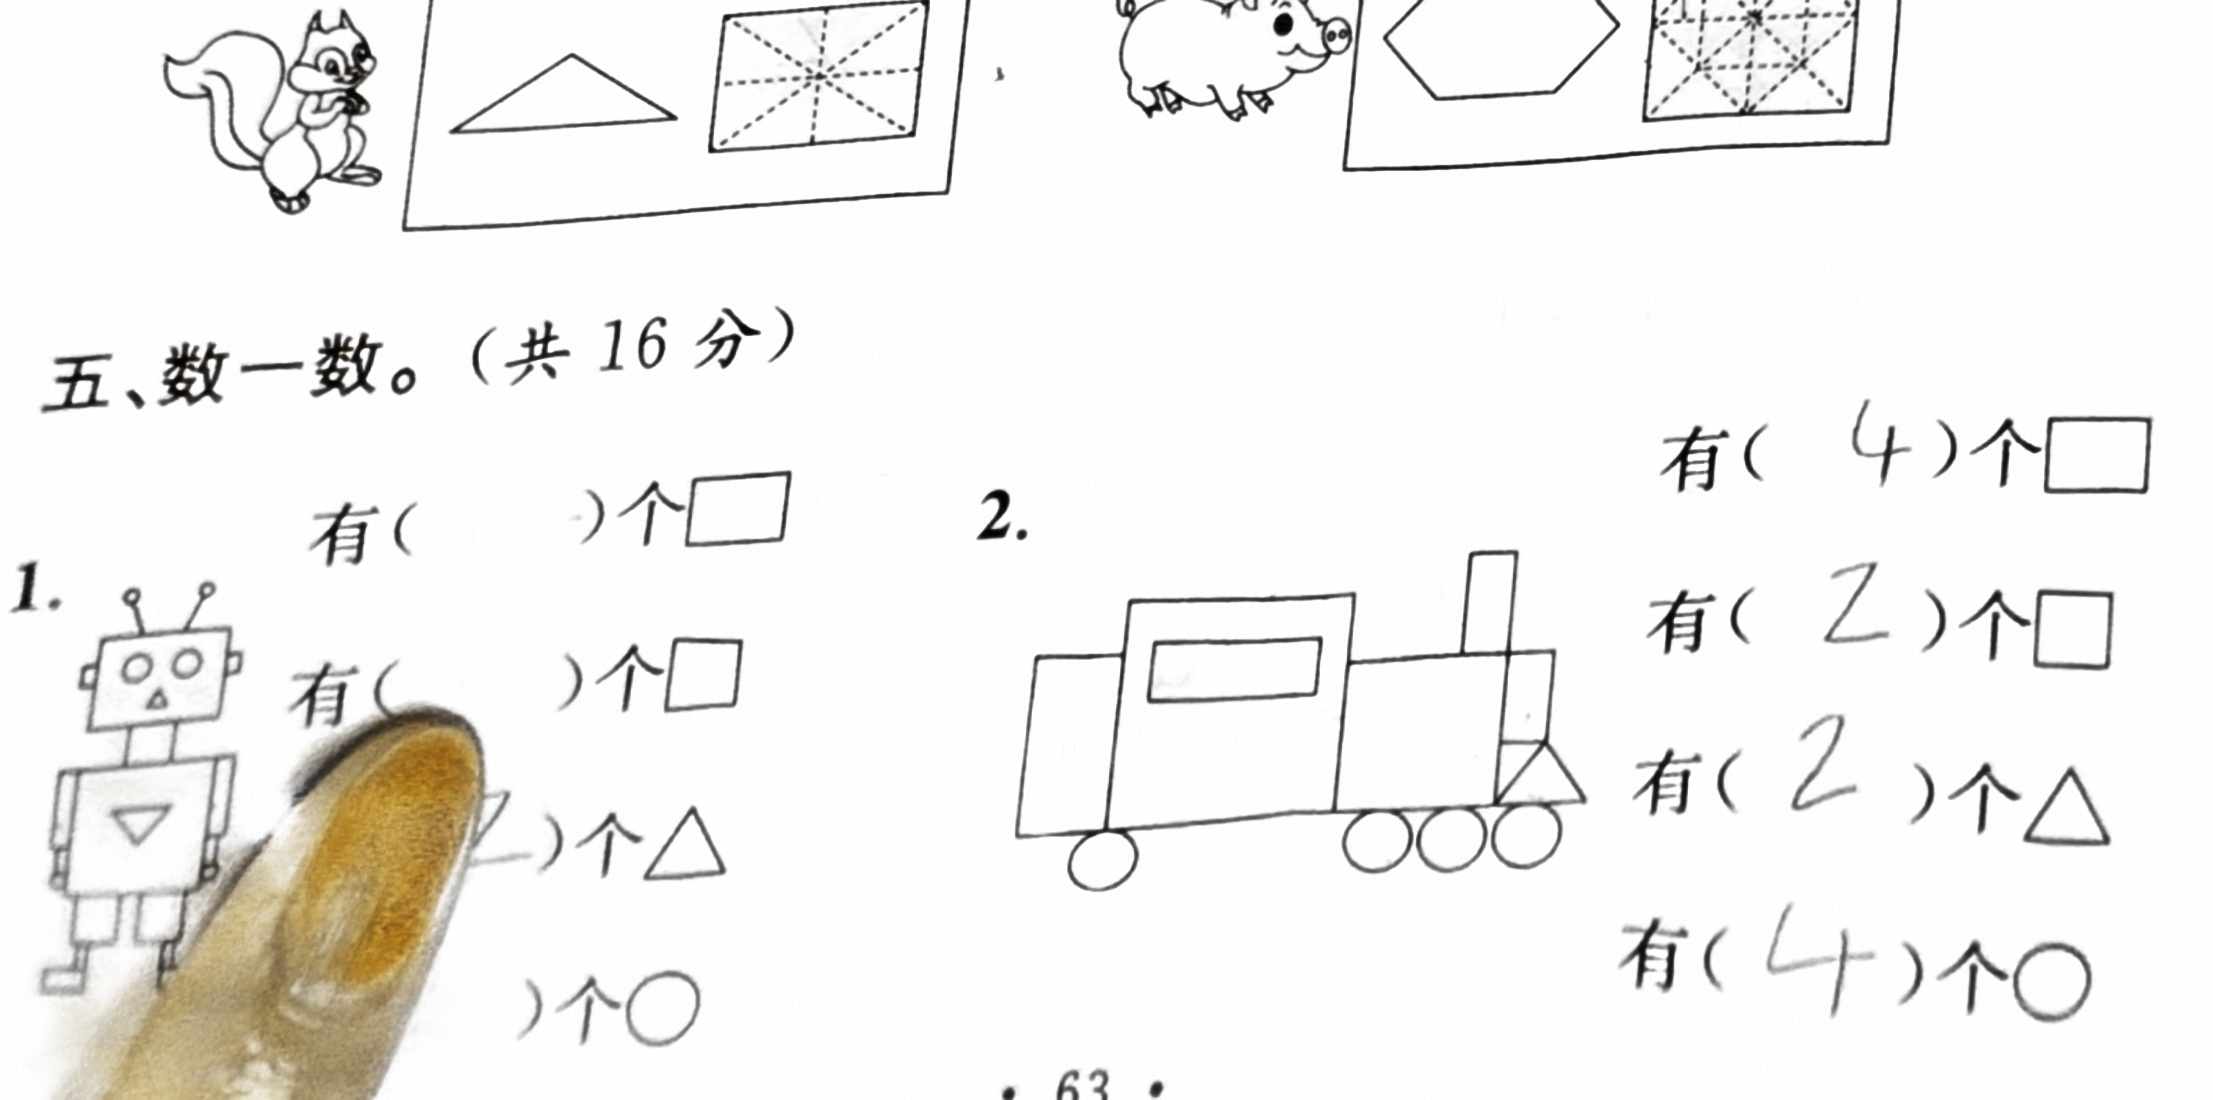 五、数一数。（共 16 分）
1.
有（ ）个□
有（ ）个□
2）个△
）个○
2.
有（ 4 ）个□
有（ 2 ）个□
有（ 2 ）个△
有（ 4 ）个○
· 63 ·